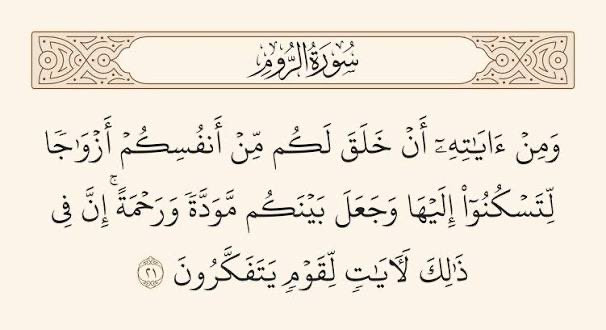 سُورَةُ الرُّومِ
وَمِنْ ءَايَـٰتِهِۦٓ أَنْ خَلَقَ لَكُم مِّنْ أَنفُسِكُمْ أَزْوَٰجًا
لِّتَسْكُنُوٓا۟ إِلَيْهَا وَجَعَلَ بَيْنَكُم مَّوَدَّةً وَرَحْمَةً ۚ إِنَّ فِى
ذَٰلِكَ لَـَٔايَـٰتٍ لِّقَوْمٍ يَتَفَكَّرُونَ ٢١